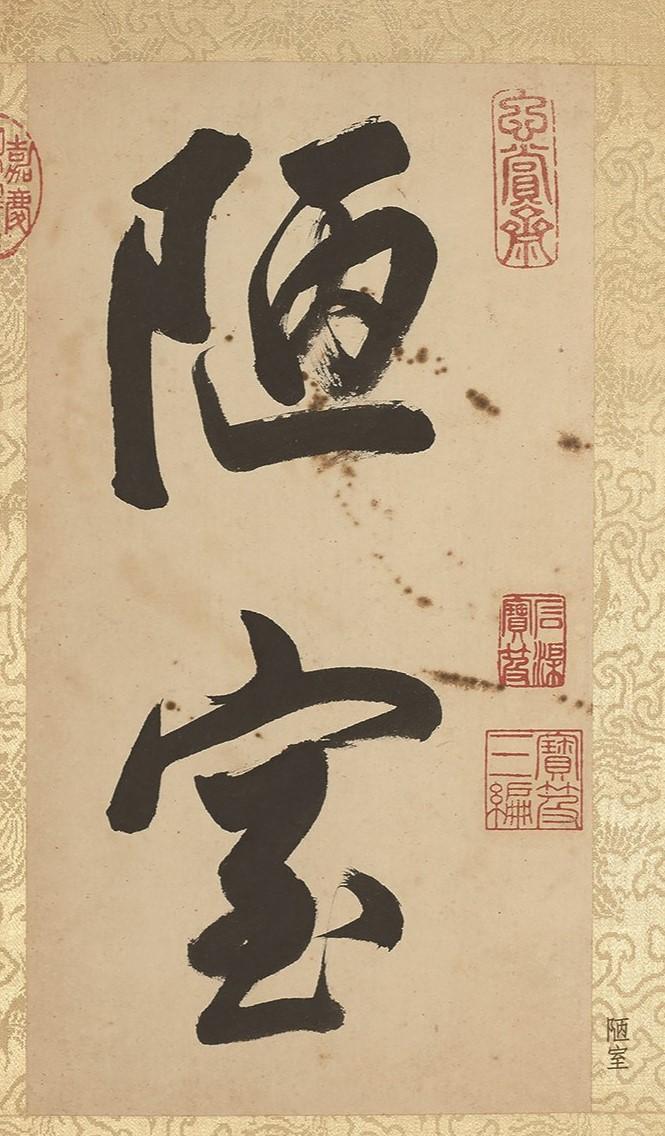 陋室
石渠寶笈
寶笈三編
嘉慶
陋室